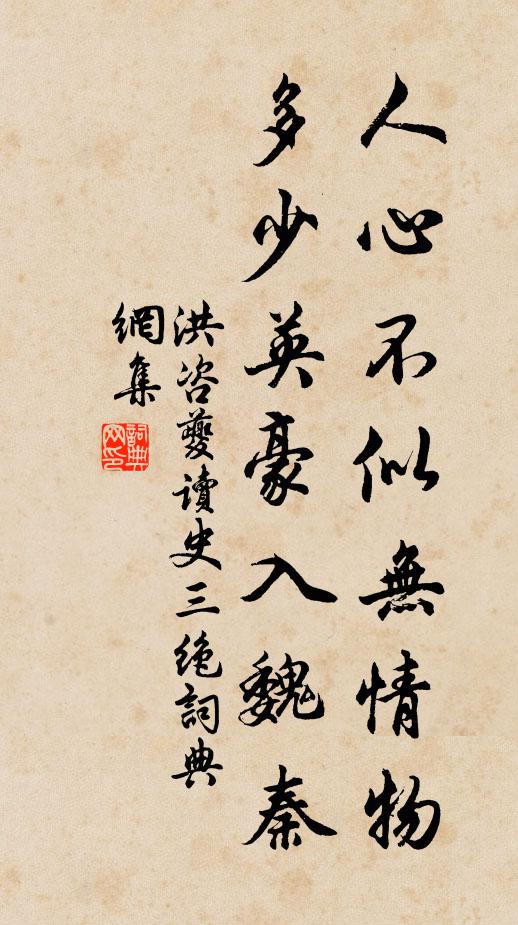 人心不似無情物
多少英豪入魏秦
洪咨夔讀史三絕詞典
網集
詞典
网印